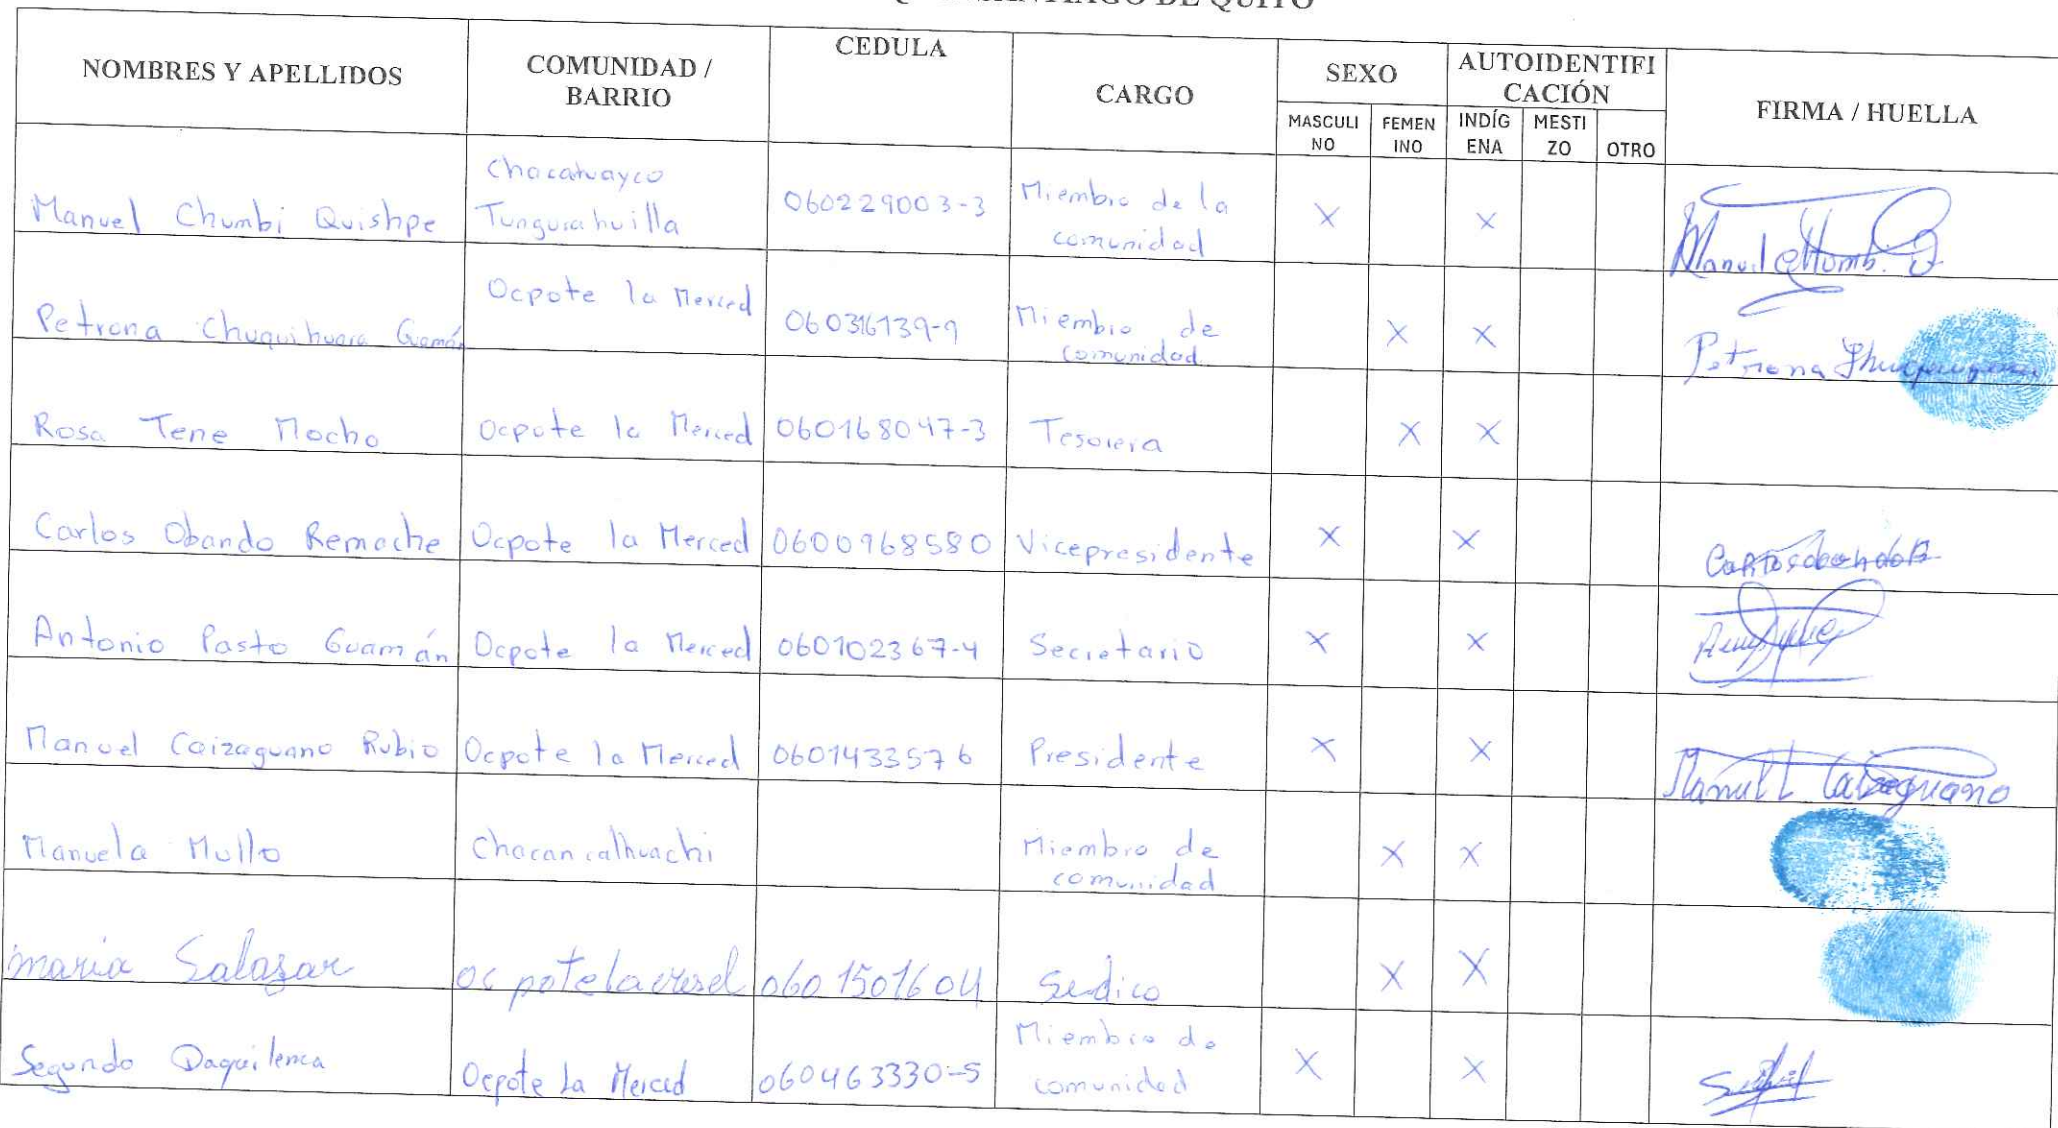 SANTIAGO DE QUITO
NOMBRES Y APELLIDOS
COMUNIDAD /
BARRIO
CEDULA
CARGO
SEXO
MASCULI
NO
FEMEN
INO
AUTOIDENTIFI
CACIÓN
INDÍG
ENA
MESTI
ZO
OTRO
FIRMA / HUELLA
Manuel Chumbi Quishpe
Chacahuayco
Tungurahuilla
060229003-3
Miembro de la
comunidad
X
X
Petrona Chuquihuara Guamán
Ocpote la Merced
060316139-9
Miembro de
comunidad
X
X
Petrona
Rosa Tene Mocho
Ocpote la Merced
060168047-3
Tesorera
X
X
Carlos Obando Remache
Ocpote la Merced
0600968580
Vicepresidente
X
X
Antonio Pasto Guamán
Ocpote la Merced
060102367-4
Secretario
X
X
Manuel Caizaguano Rubio
Ocpote la Merced
0601433576
Presidente
X
X
Manuel Caizaguano
Manuela Mullo
Chacancalhuachi
Miembro de
comunidad
X
X
maria Salazar
0601501604
Sedico
X
X
Segundo Daquilema
Ocpote La Merced
060463330-5
Miembro de
comunidad
X
X